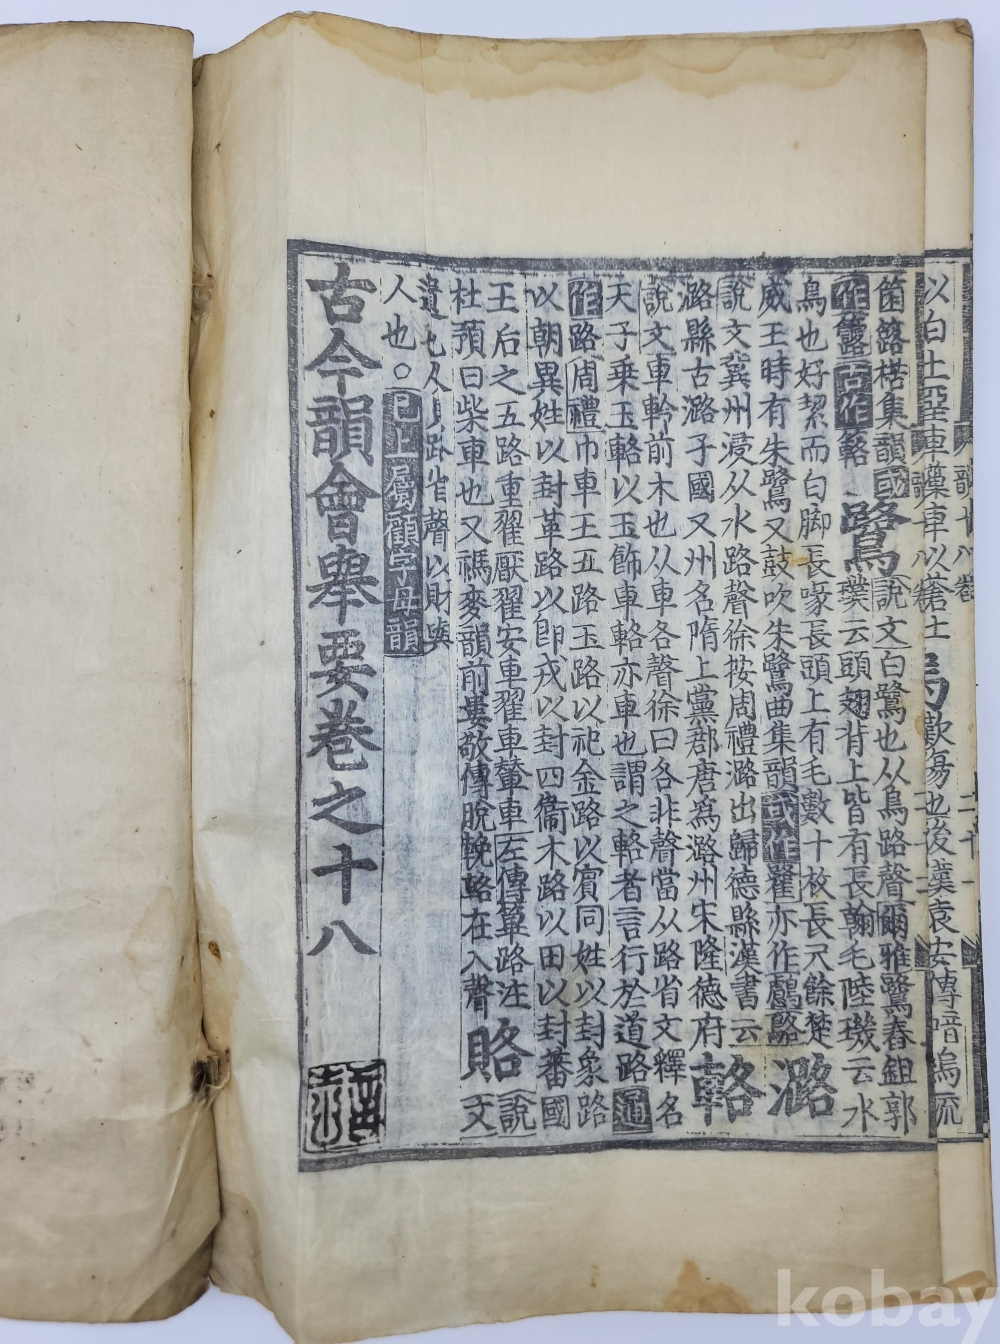 箘簬楛集韻國
作簵古作簬
鷺
說文白鷺也从鳥路聲爾雅鷺舂鉏郭
璞云頭翅背上皆有長翰毛陸璣云水
鳥也好絜而白脚長喙長頭上有毛數十枚長尺餘楚
威王時有朱鷺又鼓吹朱鷺曲集韻或作亦作
潞
說文冀州浸从水路聲徐按周禮潞出歸德縣漢書云
潞縣古潞子國又州名隋上黨郡唐爲潞州宋隆德府
輅
說文車軨前木也从車各聲徐曰各非聲當从路省文釋名
天子乘玉輅以玉飾車輅亦車也謂之輅者言行於道路通
作路周禮巾車王五路玉路以祀金路以賓同姓以封象路
以朝異姓以封革路以即戎以封四衞木路以田以封蕃國
王后之五路重翟厭翟安車翟車輦車左傳篳路注
杜預曰柴車也又禡麥韻前婁敬傳脫輓輅在入聲
賂
說文
遺也从貝路省聲以財與
人也○已上屬顧字母韻
古今韻會舉要卷之十八
以白土堊車
歎傷也後漢袁安傳喑嗚流
kobay